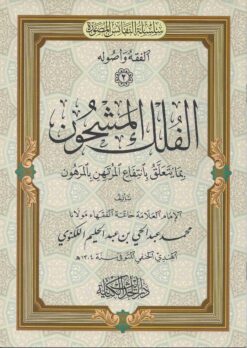 سلسلة النفائس المصورة
الفقه وأصوله
٢
الفلك المشحون
بما يتعلق بانتفاع المرتهن بالمرهون
تأليف
الإمام العلامة خاتمة الفقهاء مولانا
محمد عبد الحي بن عبد الحليم اللكنوي
الهندي الحنفي المتوفى سنة ١٣٠٤ هـ